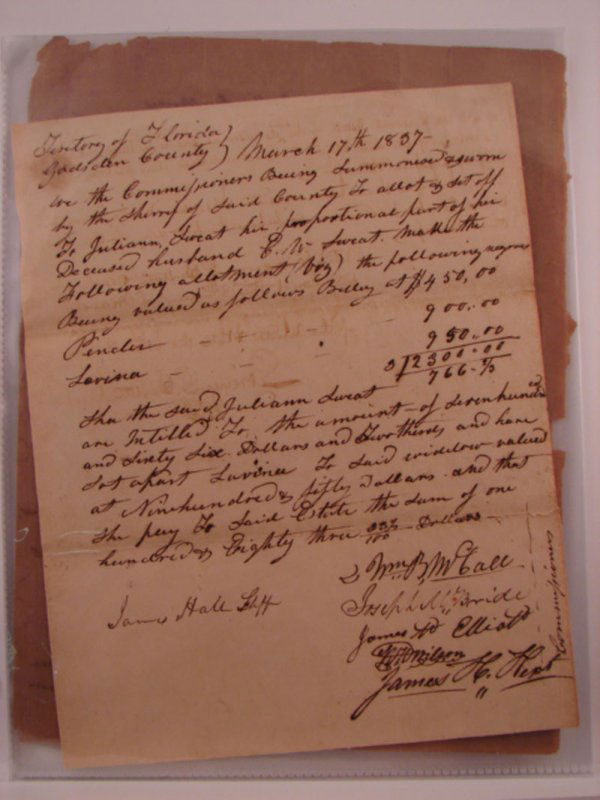 Territory of Florida }
Gadsden County } March 17th 1837
We the Commissioners Being Summonesed & sworn
by the Sherrif of said County To allot & set off
To Juliann Sweat hir proportional part of hir
Deceased husband E. W Sweat. Make the
Following allotment (viz) the following negroes
Being valued as follows Billey at $450,00
Pender 900,.00
Lovina - 950,.00
3)2300=00
766-2/3
the said Juliann Sweat
are Intitled To the amount of Sevenhundred
and Sixty Six Dollars and Twothirds and have
Set apart Lavinee To said widdow valued
at Ninehundred & fifty Dollars and that
She pay To Said Estate the Sum of one
hundred & Eighty three 33/100 Dollars
Wm B McCall
James Hall Shff
Joseph McBride
James Elliott
Wilson
James H. Kent
Commissioners